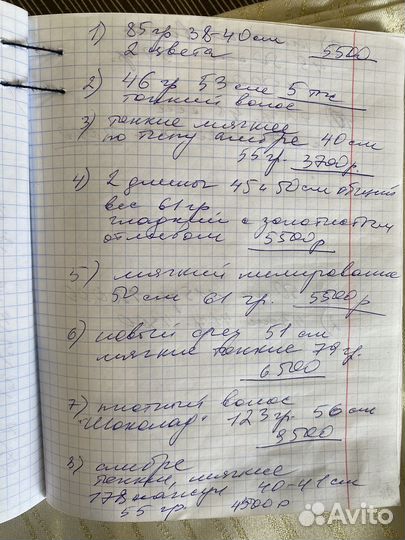 1) 85 гр 38-40 см
2 цвета 5500
2) 46 гр 53 см 5 тыс
тонкий волос
3) тонкие мягкие
по типу амбре 40 см
55 гр. 3700 р.
4) 2 длины 45 и 50 см общий
вес 61 гр
гладкий с золотистым
отливом 5500 р
5) мягкий мелирование
50 см 61 гр. 5500 р
6) новый срез 51 см
мягкие тонкие 79 гр.
6500
7) плотный волос
"Шоколад" 123 гр. 56 см
9500
8) амбре
тонкие, мягкие
178 капсул 40-41 см
55 гр 4500 р
Avito